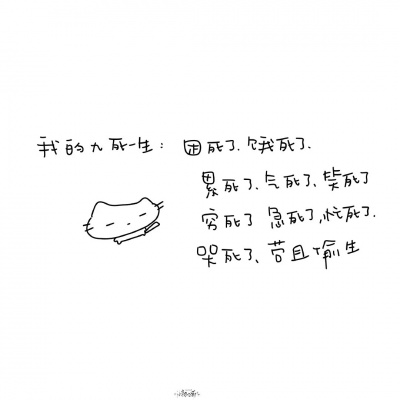 我的九死一生：困死了、饿死了、
累死了、气死了、笑死了
穷死了 急死了，忙死了、
哭死了、苟且偷生